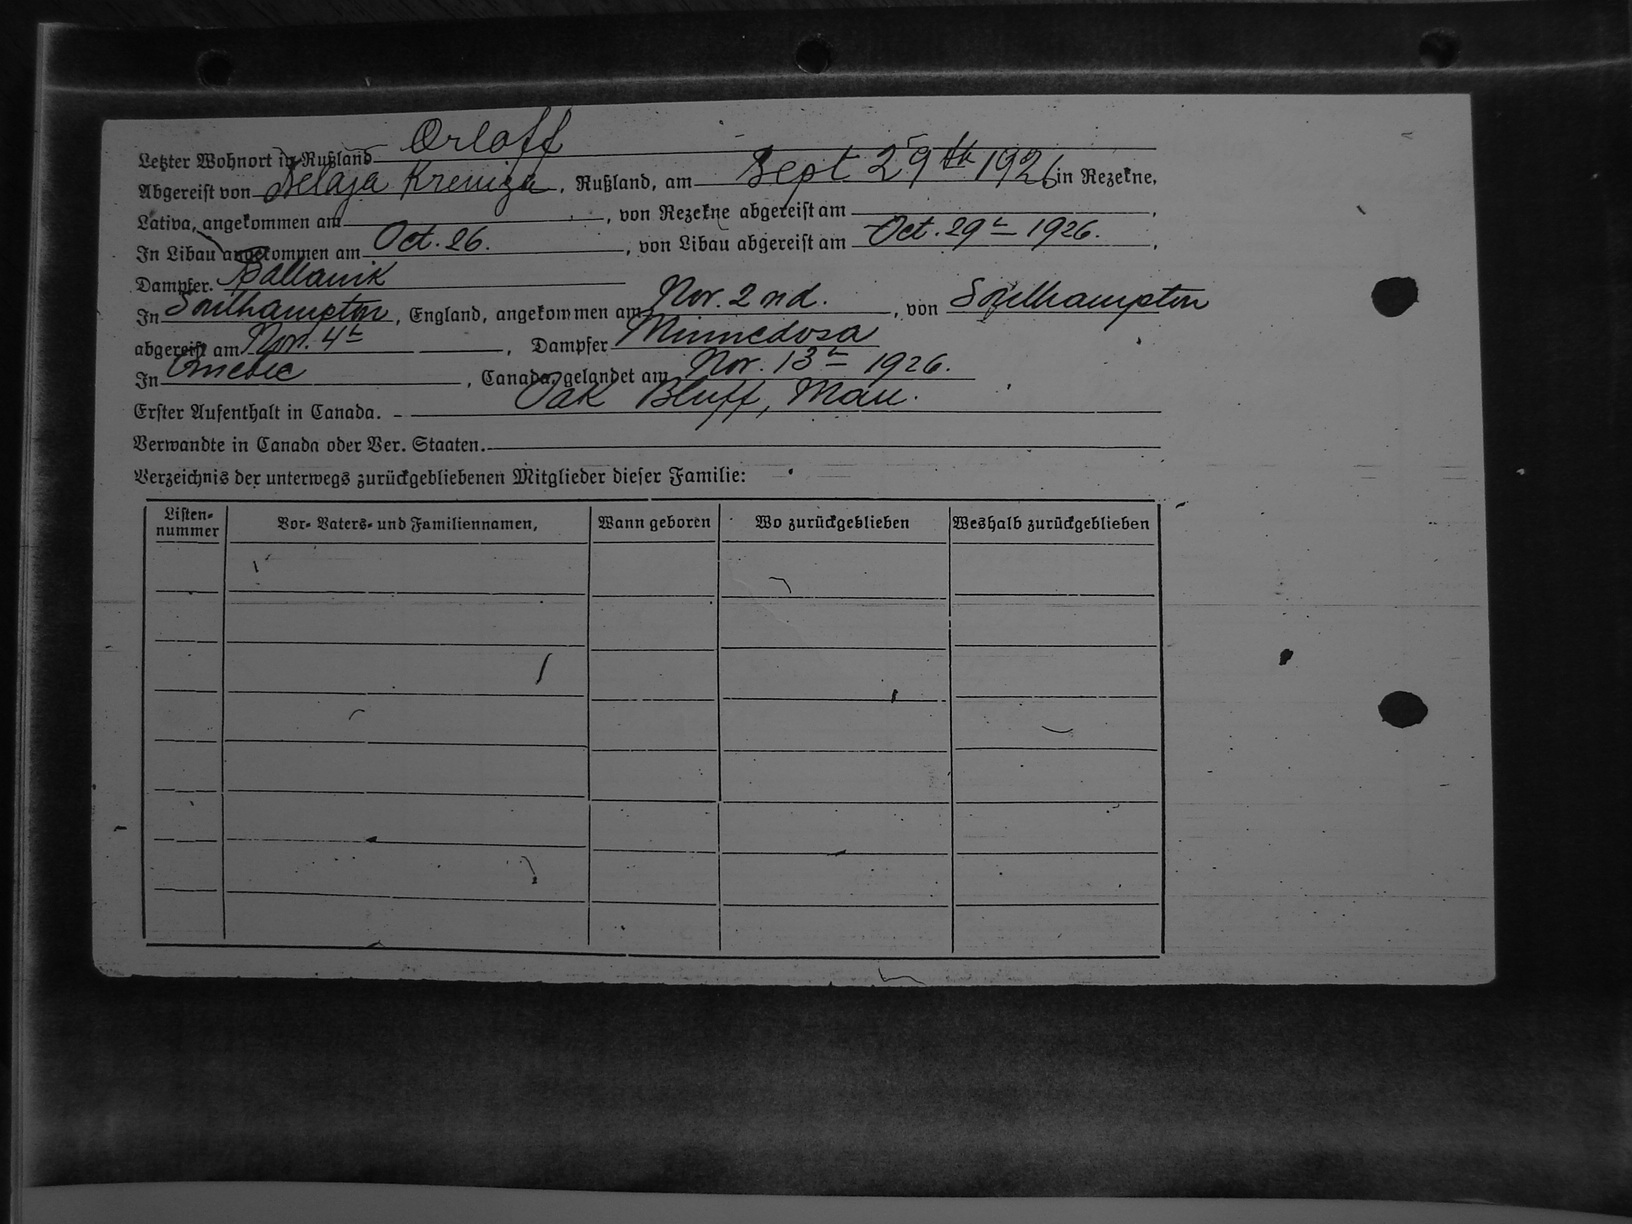 Letzter Wohnort in Rußland Orloff
Abgereist von Belaja Kreniza, Rußland, am Sept. 29th 1926 in Rezekne,
Lativa, angekommen am , von Rezekne abgereist am ,
In Libau angekommen am Oct. 26. , von Libau abgereist am Oct. 29th 1926. ,
Dampfer. Baltanik
In Southampton, England, angekommen am Nov. 2nd. , von Southampton
abgereist am Nov. 4th , Dampfer Minnedosa
In Quebec , Canada, gelandet am Nov. 13th 1926.
Erster Aufenthalt in Canada. - Oak Bluff, Man.
Verwandte in Canada oder Ver. Staaten.
Verzeichnis der unterwegs zurückgebliebenen Mitglieder dieser Familie:
Listen-nummer Vor- Vaters- und Familiennamen, Wann geboren Wo zurückgeblieben Weshalb zurückgeblieben